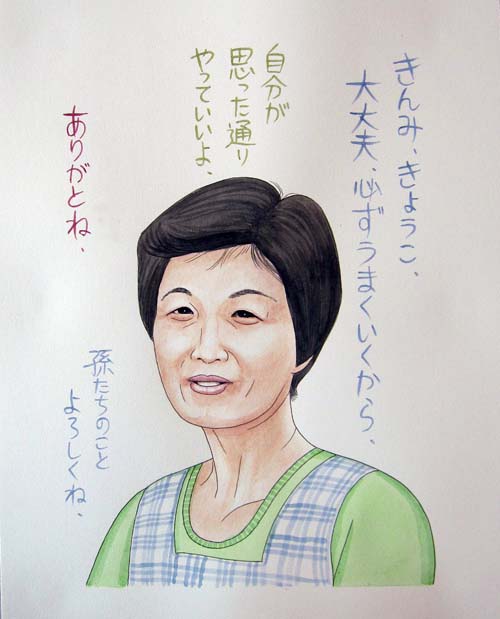 きんみ、きょうこ、
大丈夫、必ずうまくいくから、
自分が
思った通り
やっていいよ、
ありがとね、
孫たちのこと
よろしくね、